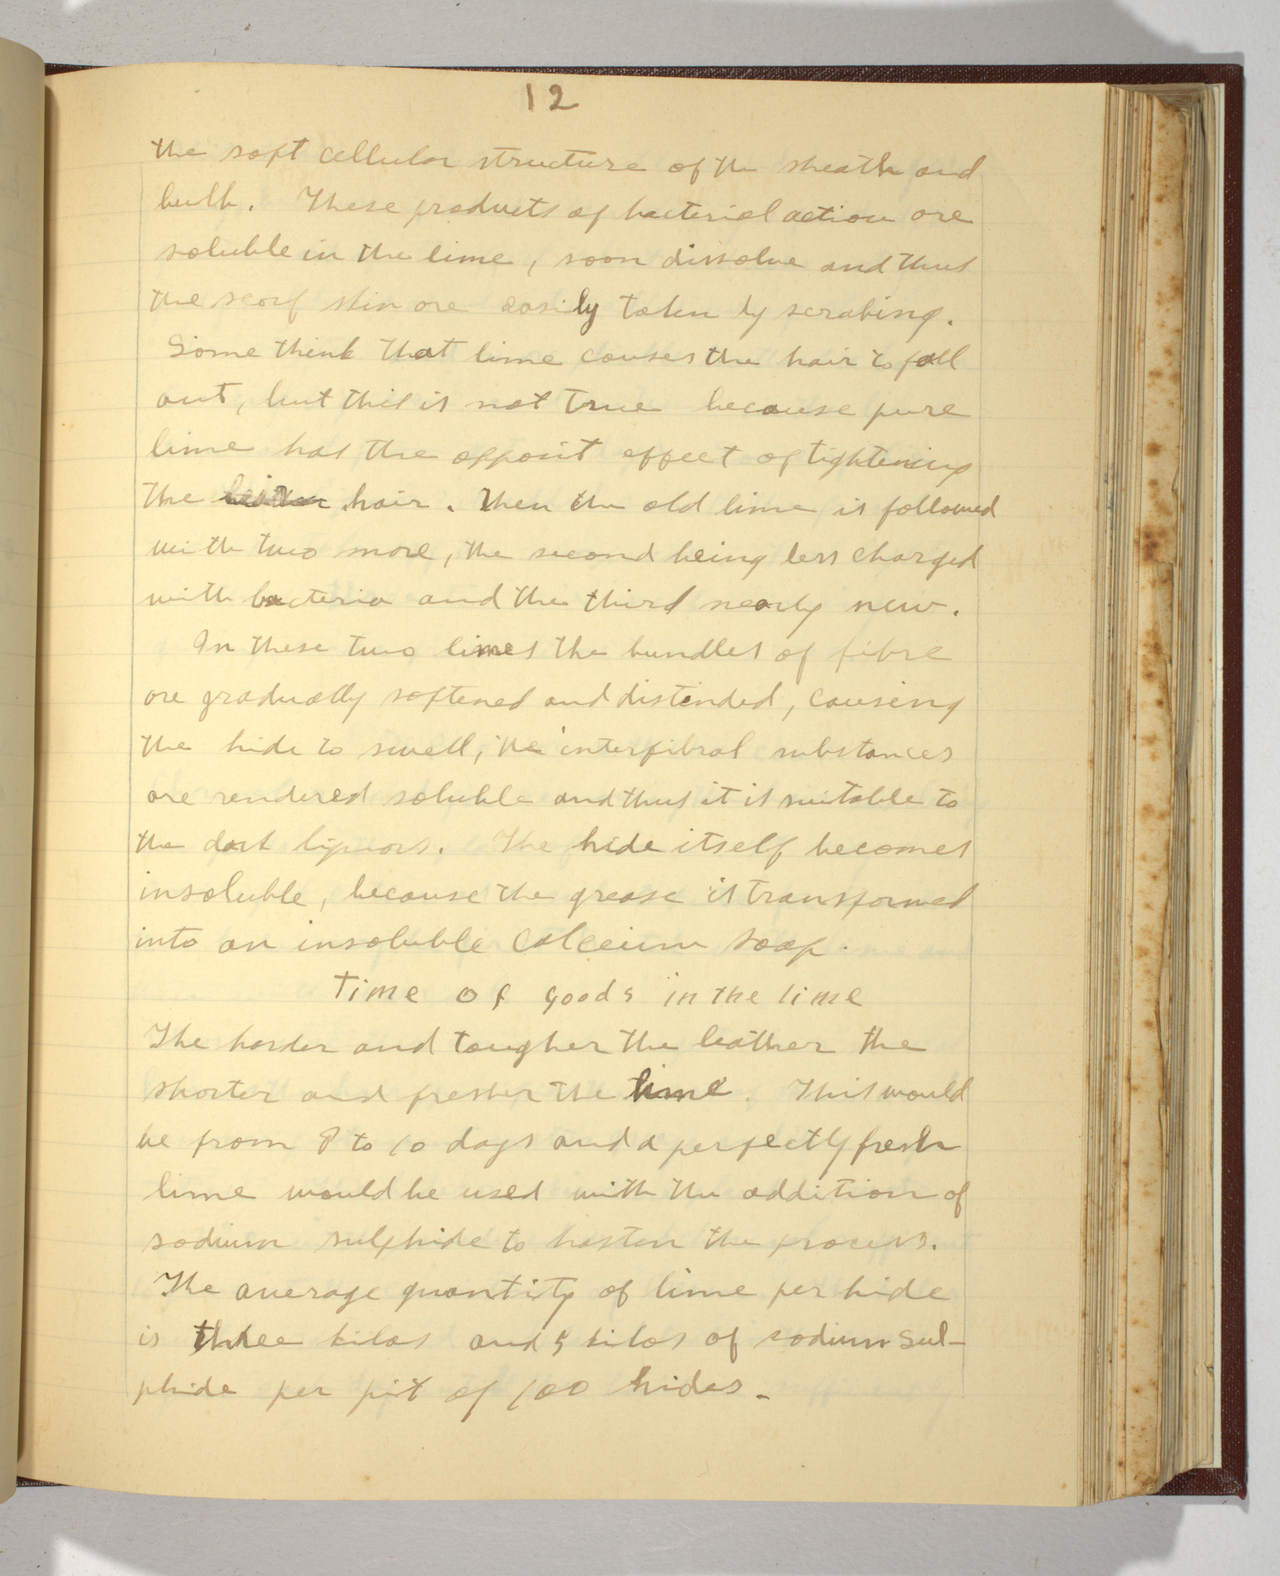 12
the soft cellular structure of the sheath and
bulb. These products of bacterial action are
soluble in the lime, soon dissolve and thus
the scarf skin are easily taken by scrabing.
Some think that lime causes the hair to fall
out, but this is not true because pure
lime has the opposit effect of tightening
the hair. Then the old lime is followed
with two more, the second being less charged
with bacteria and the third nearly new.
In these two limes the bundles of fibre
are gradually softened and distended, causing
the hide to swell, the interfibral substances
are rendered soluble and thus it is suitable to
the dark liquors. The hide itself becomes
insoluble, because the grease is transformed
into an insoluble calceium soap.
Time of goods in the lime
The harder and tougher the leather the
shorter and fresher the lime. This would
be from 8 to 10 days and a perfectly fresh
lime would be used with the addition of
sodium sulphide to hasten the process.
The average quantity of lime per hide
is three kilos and 5 kilos of sodium sul-
phide per pit of 100 hides.